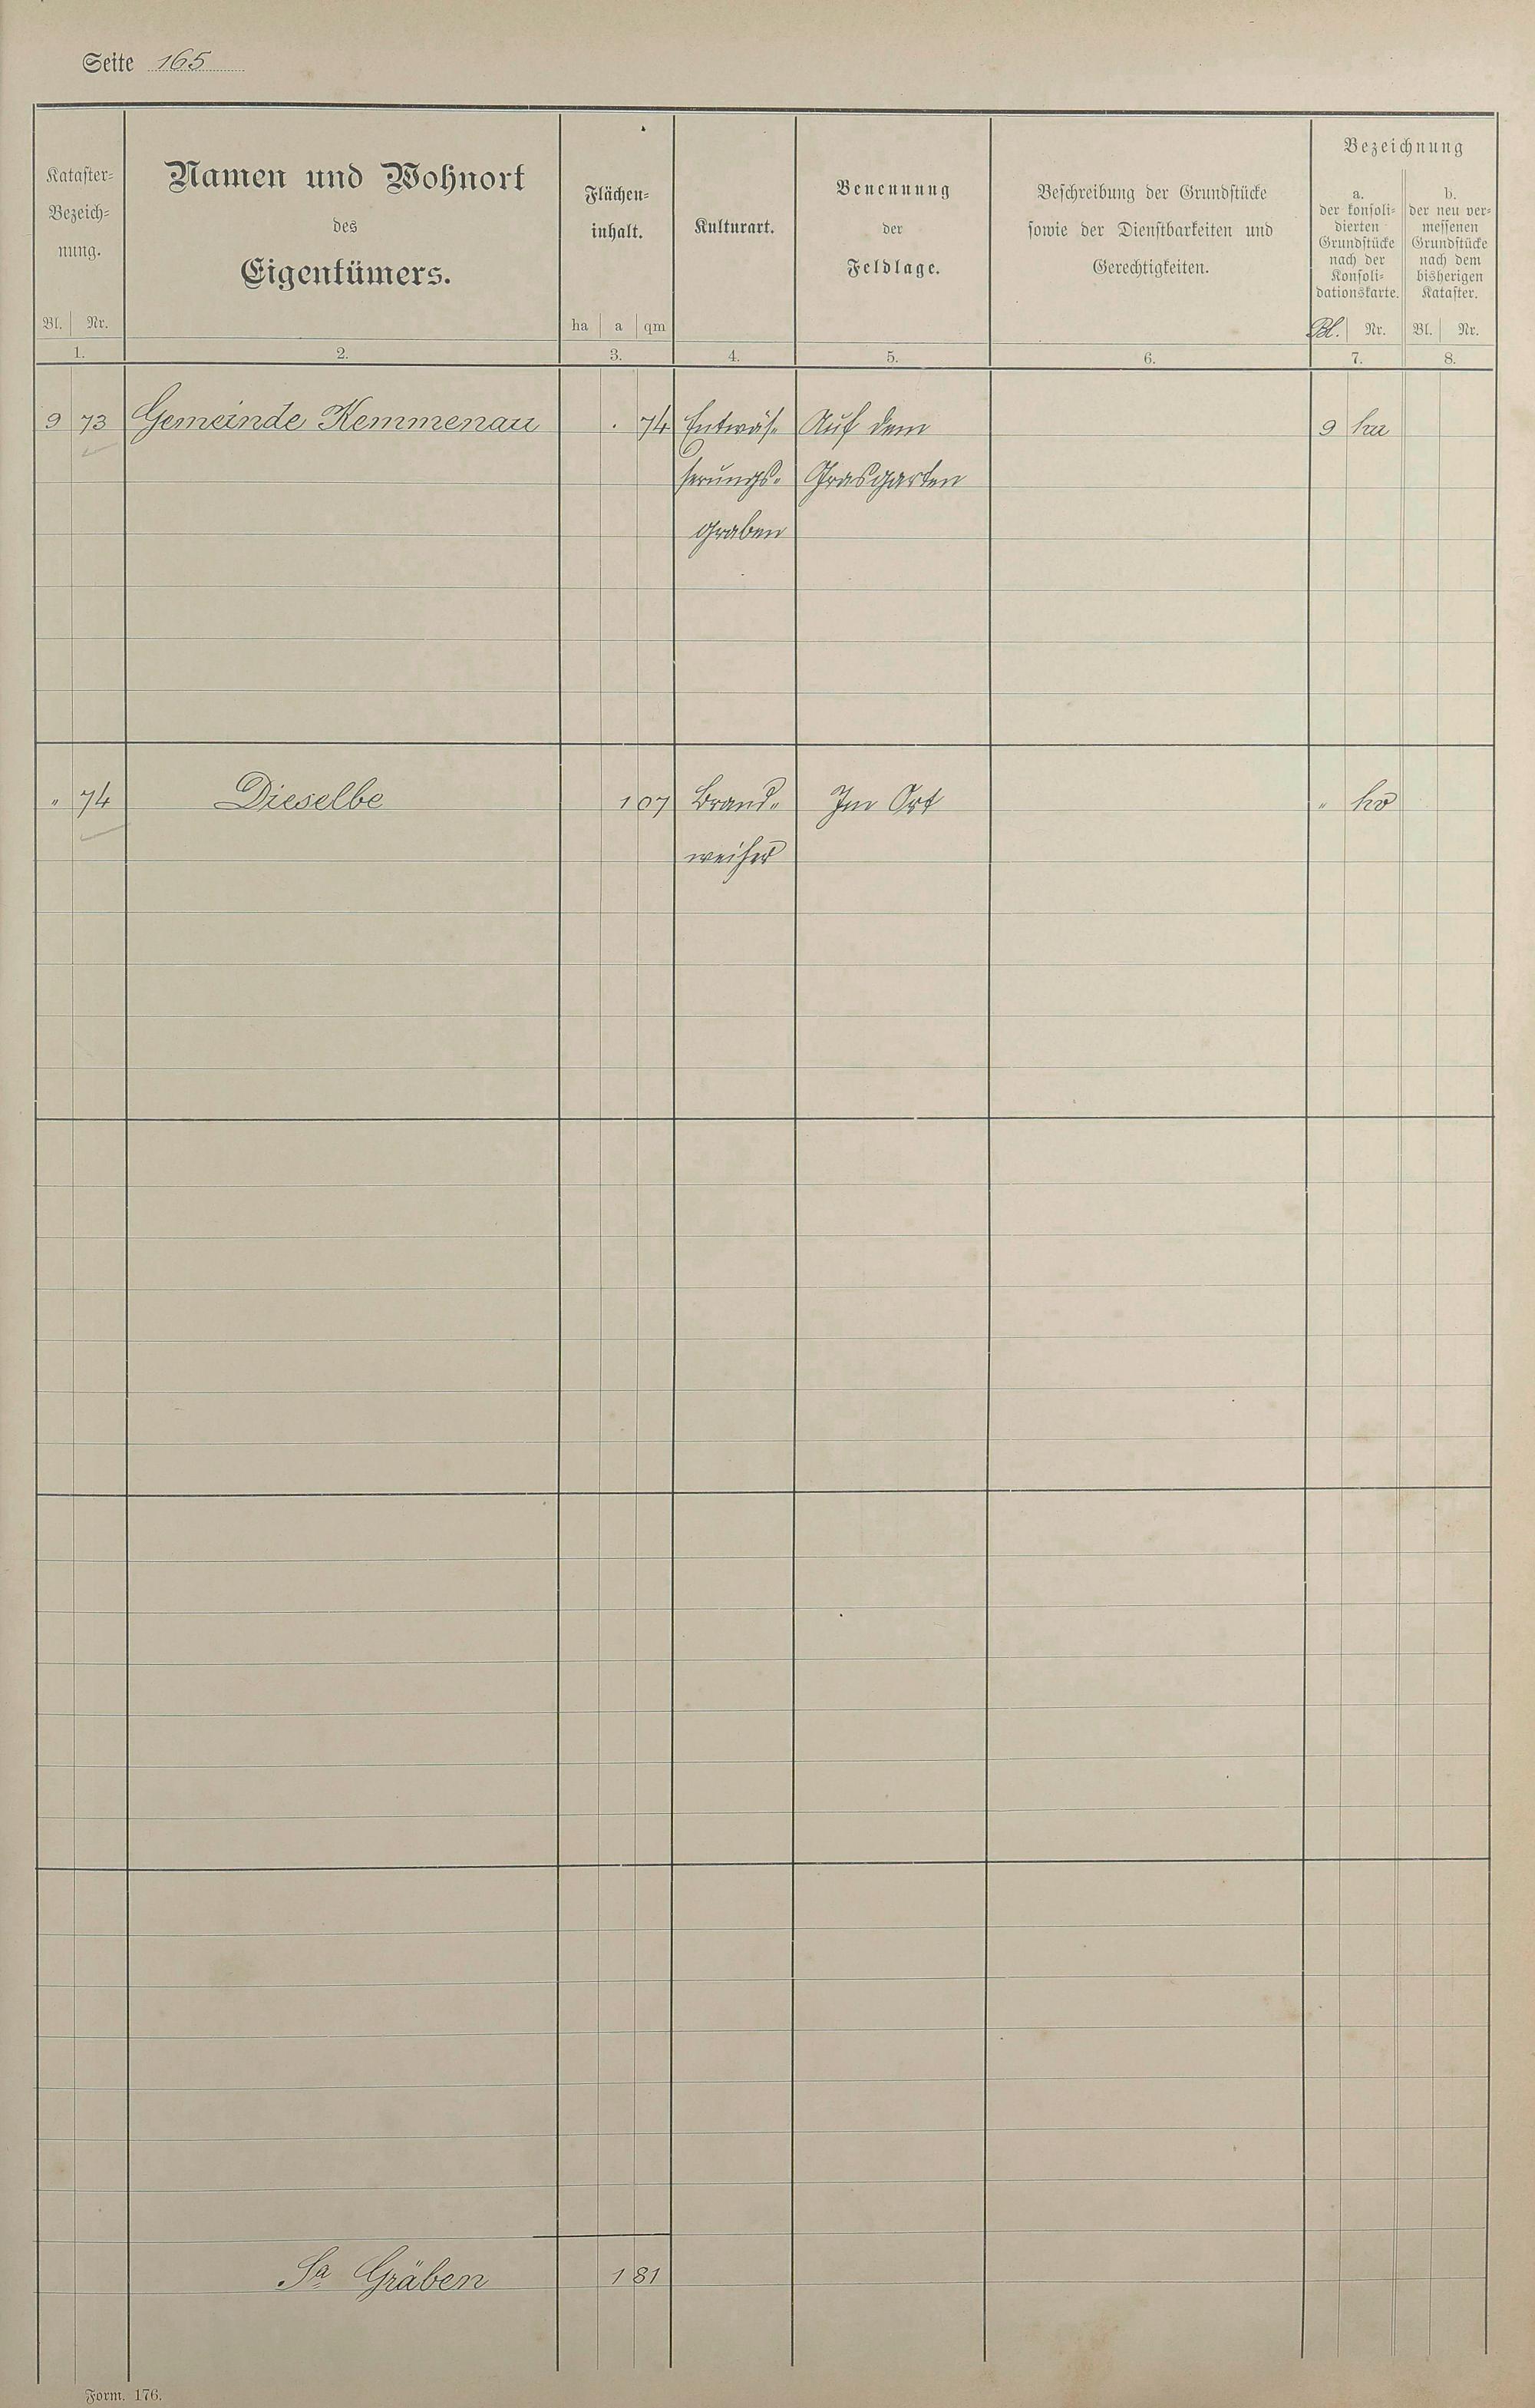 Seite 165
Kataster-
Bezeich-
nung.
Bl. Nr.
1.
Namen und Wohnort
des
Eigentümers.
2.
Flächen-
inhalt.
ha a qm
3.
Kulturart.
4.
Benennung
der
Feldlage.
5.
Beschreibung der Grundstücke
sowie der Dienstbarkeiten und
Gerechtigkeiten.
6.
Bezeichnung
a.
der konsoli-
dierten
Grundstücke
nach der
Konsoli-
dationskarte.
Bl. Nr.
7.
b.
der neu ver-
messenen
Grundstücke
nach dem
bisherigen
Kataster.
Bl. Nr.
8.
9 73 Gemeinde Kemmenau . 74 Entwäs- Auf dem 9
serungs- Grasgarten
graben
" 74 Dieselbe 1 07 Brand- Im Ort "
weiher
Sa Gräben 1 81
Form. 176.